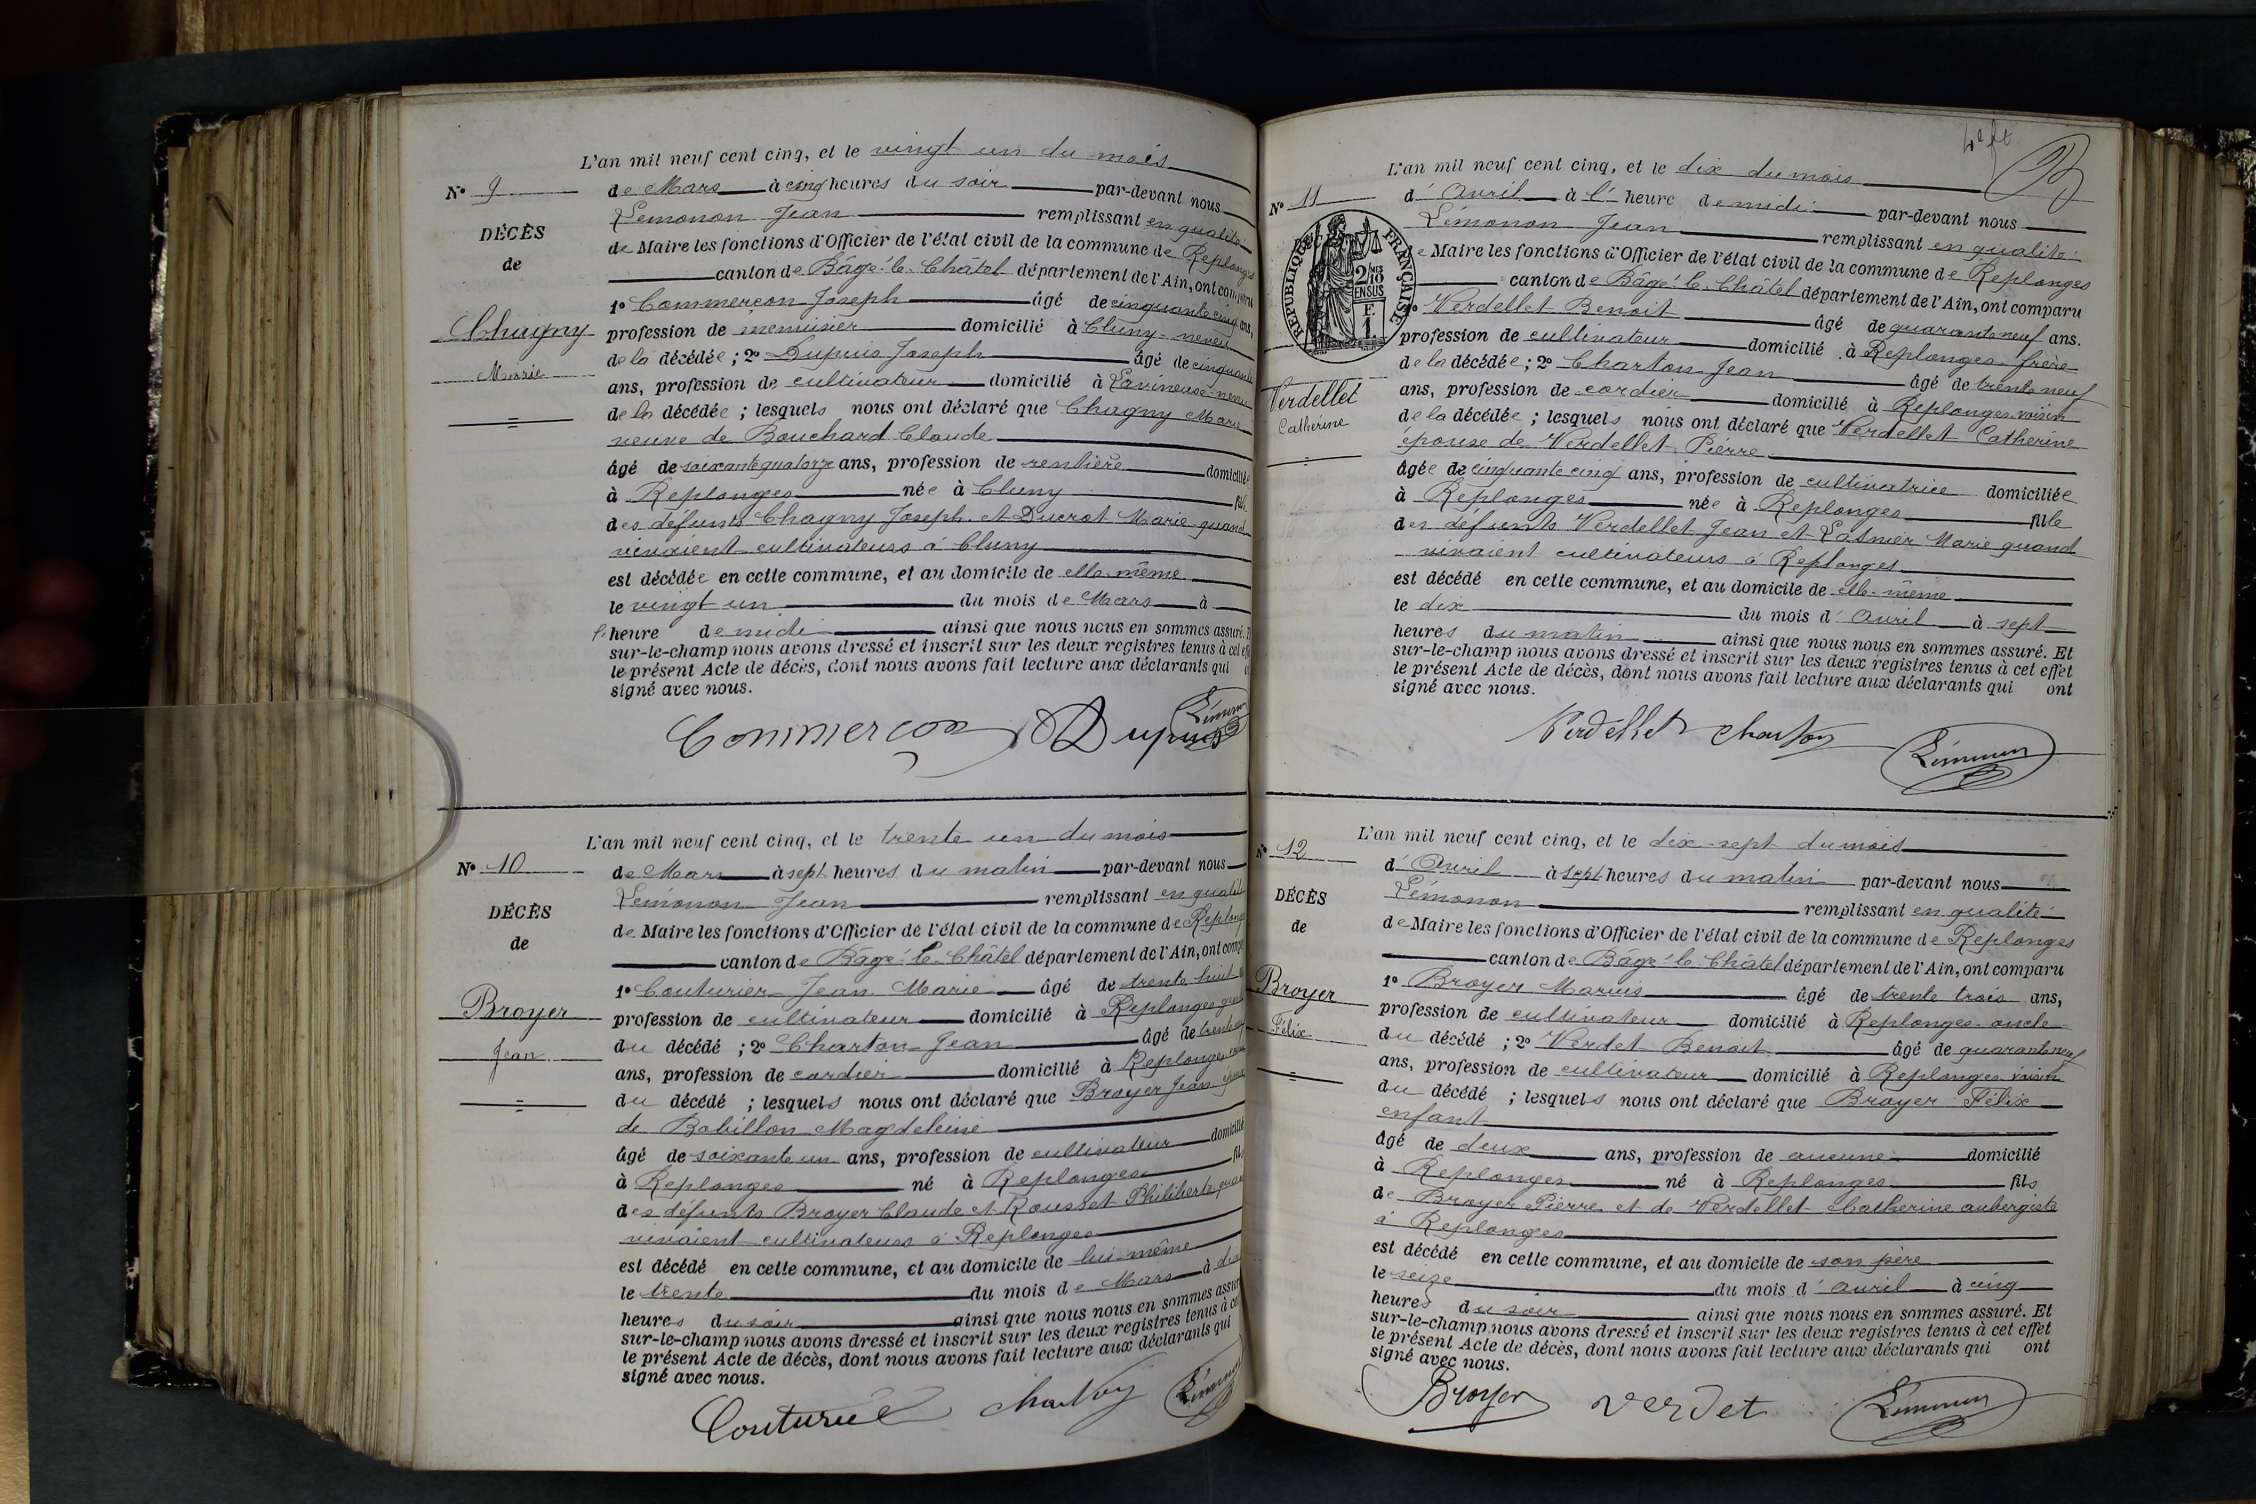 L'an mil neuf cent cinq, et le vingt un du mois
N° 9
de Mars à cinq heures du soir par-devant nous
Lémonon Jean remplissant en qualité
DÉCÈS
de Maire les fonctions d'Officier de l'état civil de la commune de Replonges
de
canton de Bâgé-le-Châtel département de l'Ain, ont comparu
1° Commerçon Joseph âgé de cinquante cinq ans,
Chagny
profession de menuisier domicilié à Cluny neveu
de la décédée ; 2° Dupuis Joseph âgé de cinquante
Marie
ans, profession de cultivateur domicilié à neveu
de la décédée ; lesquels nous ont déclaré que Chagny Marie
veuve de Bouchard Claude
âgé de soixante quatorze ans, profession de rentière domiciliée
à Replonges née à Cluny fille
des défunts Chagny Joseph et Ducrot Marie quand
vivaient cultivateurs à Cluny
est décédée en cette commune, et au domicile de elle-même
le vingt un du mois de Mars à
l'heure de midi ainsi que nous nous en sommes assuré. Et
sur-le-champ nous avons dressé et inscrit sur les deux registres tenus à cet effet
le présent Acte de décès, dont nous avons fait lecture aux déclarants qui
signé avec nous.
Commerçon Dupuis Lémonon
L'an mil neuf cent cinq, et le trente un du mois
N° 10
de Mars à sept heures du matin par-devant nous
Lémonon Jean remplissant en qualité
DÉCÈS
de Maire les fonctions d'Officier de l'état civil de la commune de Replonges
de
canton de Bâgé-le-Châtel département de l'Ain, ont comparu
1° Couturier Jean Marie âgé de trente huit
Broyer
profession de cultivateur domicilié à Replonges
Jean
du décédé ; 2° Charton Jean âgé de trente neuf
ans, profession de cordier domicilié à Replonges
du décédé ; lesquels nous ont déclaré que Broyer Jean époux
de Bobillon Magdeleine
âgé de soixante un ans, profession de cultivateur domicilié
à Replonges né à Replonges fils
des défunts Broyer Claude et Rousset Philiberte quand
vivaient cultivateurs à Replonges
est décédé en cette commune, et au domicile de lui-même
le trente du mois de Mars à
heures du soir ainsi que nous nous en sommes assuré
sur-le-champ nous avons dressé et inscrit sur les deux registres tenus à cet
le présent Acte de décès, dont nous avons fait lecture aux déclarants qui
signé avec nous.
Couturier Charton Lémonon
L'an mil neuf cent cinq, et le dix du mois
N° 11
d'Avril à l'heure de midi par-devant nous
Lémonon Jean remplissant en qualité
de Maire les fonctions d'Officier de l'état civil de la commune de Replonges
canton de Bâgé-le-Châtel département de l'Ain, ont comparu
RÉPUBLIQUE FRANÇAISE
2/10 MES
EN SUS
E
1
1° Verdellet Benoit âgé de quarante neuf ans.
profession de cultivateur domicilié à Replonges frère
de la décédée ; 2° Charton Jean âgé de trente neuf
Verdellet
ans, profession de cordier domicilié à Replonges voisin
Catherine
de la décédée ; lesquels nous ont déclaré que Verdellet Catherine
épouse de Verdellet Pierre
âgée de cinquante cinq ans, profession de cultivatrice domiciliée
à Replonges née à Replonges fille
des défunts Verdellet Jean et Marie quand
vivaient cultivateurs à Replonges
est décédé en cette commune, et au domicile de elle-même
le dix du mois d'Avril à sept
heures du matin ainsi que nous nous en sommes assuré. Et
sur-le-champ nous avons dressé et inscrit sur les deux registres tenus à cet effet
le présent Acte de décès, dont nous avons fait lecture aux déclarants qui ont
signé avec nous.
Verdellet Charton Lémonon
L'an mil neuf cent cinq, et le dix-sept du mois
N° 12
d'Avril à sept heures du matin par-devant nous
Lémonon remplissant en qualité
DÉCÈS
de Maire les fonctions d'Officier de l'état civil de la commune de Replonges
de
canton de Bâgé-le-Châtel département de l'Ain, ont comparu
1° Broyer Marius âgé de trente trois ans,
Broyer
profession de cultivateur domicilié à Replonges oncle
Félix
du décédé ; 2° Verdet Benoit âgé de quarante neuf
ans, profession de cultivateur domicilié à Replonges voisin
du décédé ; lesquels nous ont déclaré que Broyer Félix
enfant
âgé de deux ans, profession de aucune domicilié
à Replonges né à Replonges fils
de Broyer Pierre et de Verdellet Catherine aubergiste
à Replonges
est décédé en cette commune, et au domicile de son père
le seize du mois d'avril à cinq
heures du soir ainsi que nous nous en sommes assuré. Et
sur-le-champ nous avons dressé et inscrit sur les deux registres tenus à cet effet
le présent Acte de décès, dont nous avons fait lecture aux déclarants qui ont
signé avec nous.
Broyer Verdet Lémonon